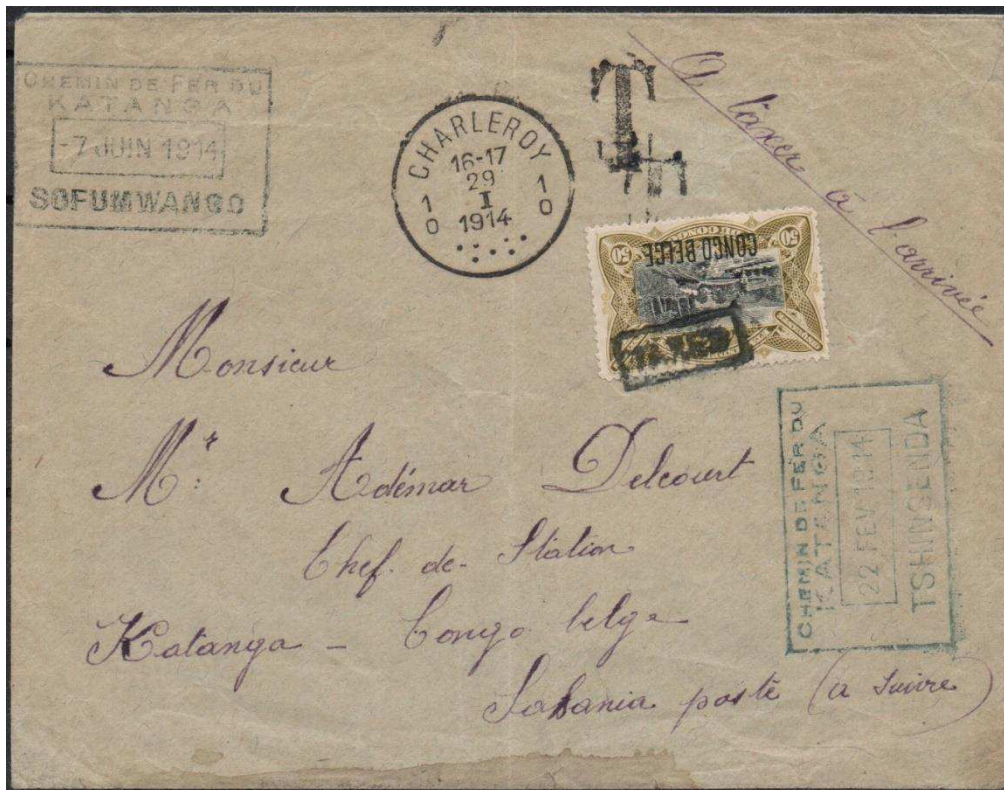 CHEMIN DE FER DU
KATANGA
-7 JUIN 1914
SOFUMWANGO
CHARLEROY
16-17
29
I
1914
1 0
1 0
T
A taxer à l'arrivée
50
50
CONGO BELGE
Monsieur
Mr. Adémar Delcourt
Chef. de. Station
Katanga - Congo belge
Sakania poste (à suivre)
CHEMIN DE FER DU
KATANGA
22 FEV 1914
TSHINSENDA